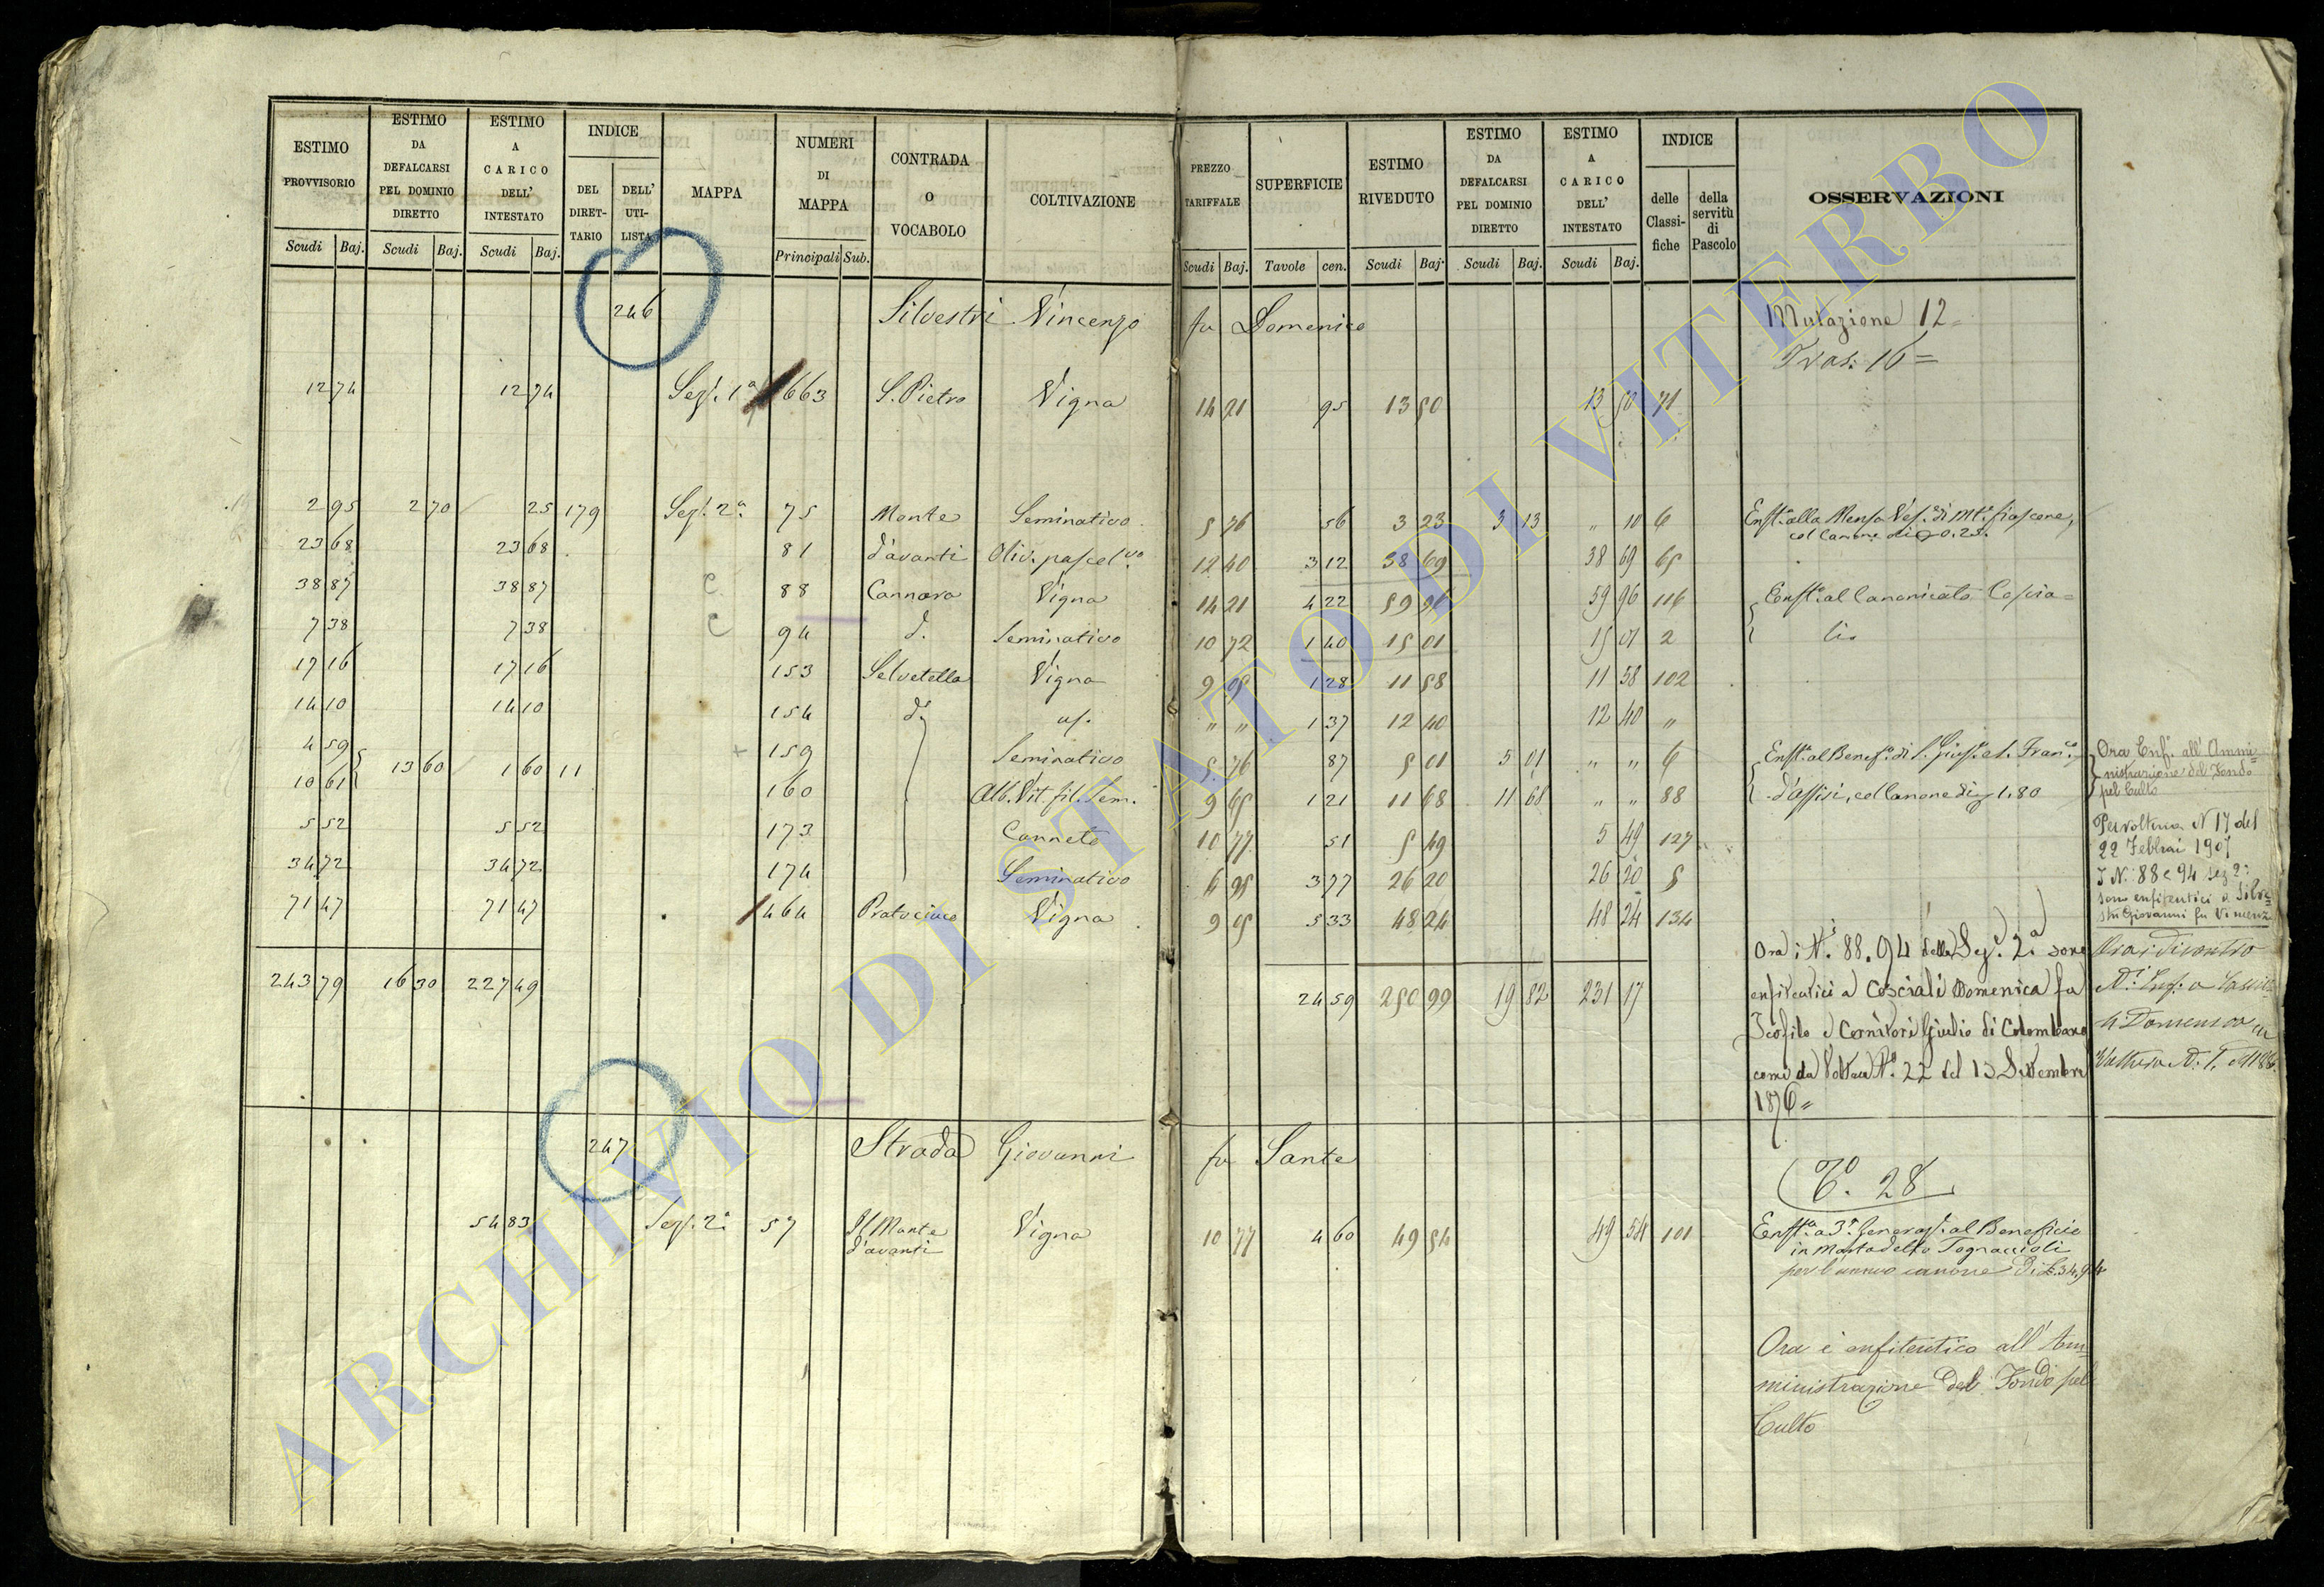 ESTIMO PROVVISORIO | ESTIMO DA DEFALCARSI PEL DOMINIO DIRETTO | ESTIMO A CARICO DELL' INTESTATO | INDICE | MAPPA | NUMERI DI MAPPA | CONTRADA O VOCABOLO | COLTIVAZIONE | PREZZO TARIFFALE | SUPERFICIE | ESTIMO RIVEDUTO | ESTIMO DA DEFALCARSI PEL DOMINIO DIRETTO | ESTIMO A CARICO DELL' INTESTATO | INDICE | OSSERVAZIONI
DEL DIRET-TARIO | DELL' UTI-LISTA | delle Classi-fiche | della servitù di Pascolo
Scudi | Baj. | Scudi | Baj. | Scudi | Baj. | Principali | Sub. | Scudi | Baj. | Tavole | cen. | Scudi | Baj. | Scudi | Baj. | Scudi | Baj.
246 Silvestri Vincenzo fu Domenico Mutazione 12
Tras: 16
12 74 | 12 74 | Sez. 1ª | 663 | S. Pietro | Vigna | 14 21 | 95 | 13 50 | 13 50 | 71
2 95 | 2 70 | 25 | 179 | Sez. 2ª | 75 | Monte | Seminativo | 5 76 | 56 | 3 23 | 3 13 | " 10 | 6 | Enfit. alla Mensa Ves. di Mte fiascone,
col Canone di 0.25.
23 68 | 23 68 | 81 | d'avanti | Oliv. pascolvo | 12 40 | 3 12 | 38 69 | 38 69 | 65
38 87 | 38 87 | 88 | Cannara | Vigna | 14 21 | 4 22 | 59 96 | 59 96 | 116 | Enfit. al Canonicato Coscia=
7 38 | 7 38 | 94 | d. | Seminativo | 10 72 | 1 40 | 15 01 | 15 01 | 2 | li.
17 16 | 17 16 | 153 | Selvetella | Vigna | 9 05 | 1 28 | 11 58 | 11 58 | 102
14 10 | 14 10 | 154 | d. | as. | " " | 1 37 | 12 40 | 12 40 | "
4 59 | 13 60 | 1 60 | 11 | 159 | Seminativo | 5 76 | 87 | 5 01 | 5 01 | " " | 6 | Enft. al Benef. di S. Gius. e S. Franco
10 61 | 160 | Alb. Vit. fil. Sem. | 9 65 | 1 21 | 11 68 | 11 68 | " " | 88 | d'Assisi, col Canone di 1.80
5 52 | 5 52 | 173 | Canneto | 10 77 | 51 | 5 49 | 5 49 | 127
34 72 | 34 72 | 174 | Seminativo | 6 95 | 3 77 | 26 20 | 26 20 | 5
71 47 | 71 47 | 464 | Vigna | 9 05 | 5 33 | 48 24 | 48 24 | 134
243 79 | 16 30 | 227 49 | 24 59 | 250 99 | 19 82 | 231 17
Ora i N.i 88. 94 della Sez. 2ª sono
enfiteutici a Cosciali Domenica fu
Teofilo e Cornitori Giulio di Colombano
come da Voltura N. 22 del 13 Settembre
1876
Ora Enf. all' Ammi
nistrazione del Fondo
pel Culto
Per voltura N 17 del
22 Febbrai 1907
I N. 88 e 94 sez 2ª
sono enfiteutici a Silve
stri Giovanni fu Vincenz
247 Strada Giovanni fu Sante
T.o 28
54 83 | Sez. 2ª | 57 | Il Monte | Vigna | 10 77 | 4 60 | 49 54 | 49 54 | 101 | Enfta a 3ª Generaz. al Beneficio
d'avanti
in Marta detto Tognaccioli
per l'annuo canone di L. 34,94
Ora è enfiteutico all' Am=
ministrazione Del Fondo pel
Culto
ARCHIVIO DI STATO DI VITERBO